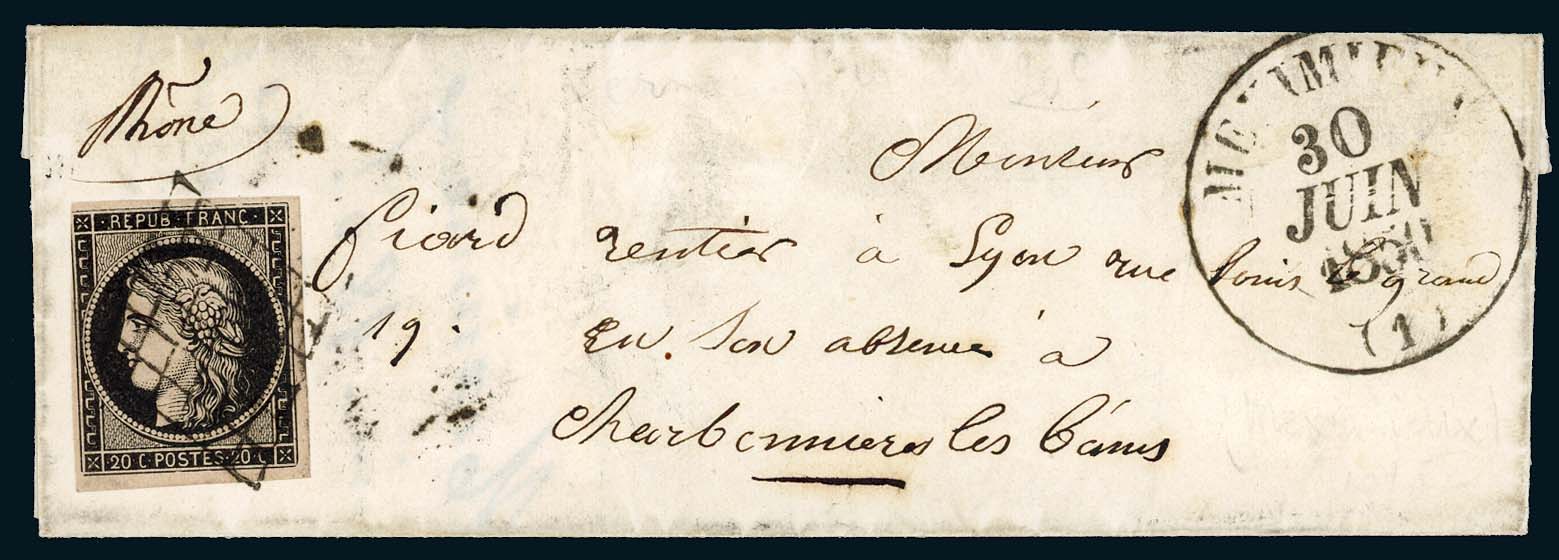 Rhône
REPUB. FRANC.
20 C. POSTES. 20 C.
30
JUIN
1850
(1)
Monsieur
Girard rentier à Lyon rue Louis le grand
19. En son absence à
Charbonnières les bains